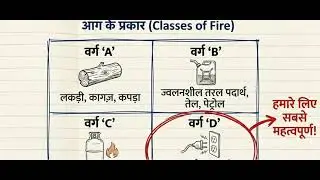 आग के प्रकार (Classes of Fire)
वर्ग ‘A’
लकड़ी, कागज़, कपड़ा
वर्ग ‘B’
ज्वलनशील तरल पदार्थ,
तेल, पेट्रोल
हमारे लिए
सबसे
महत्वपूर्ण!
वर्ग ‘C’
वर्ग ‘D’